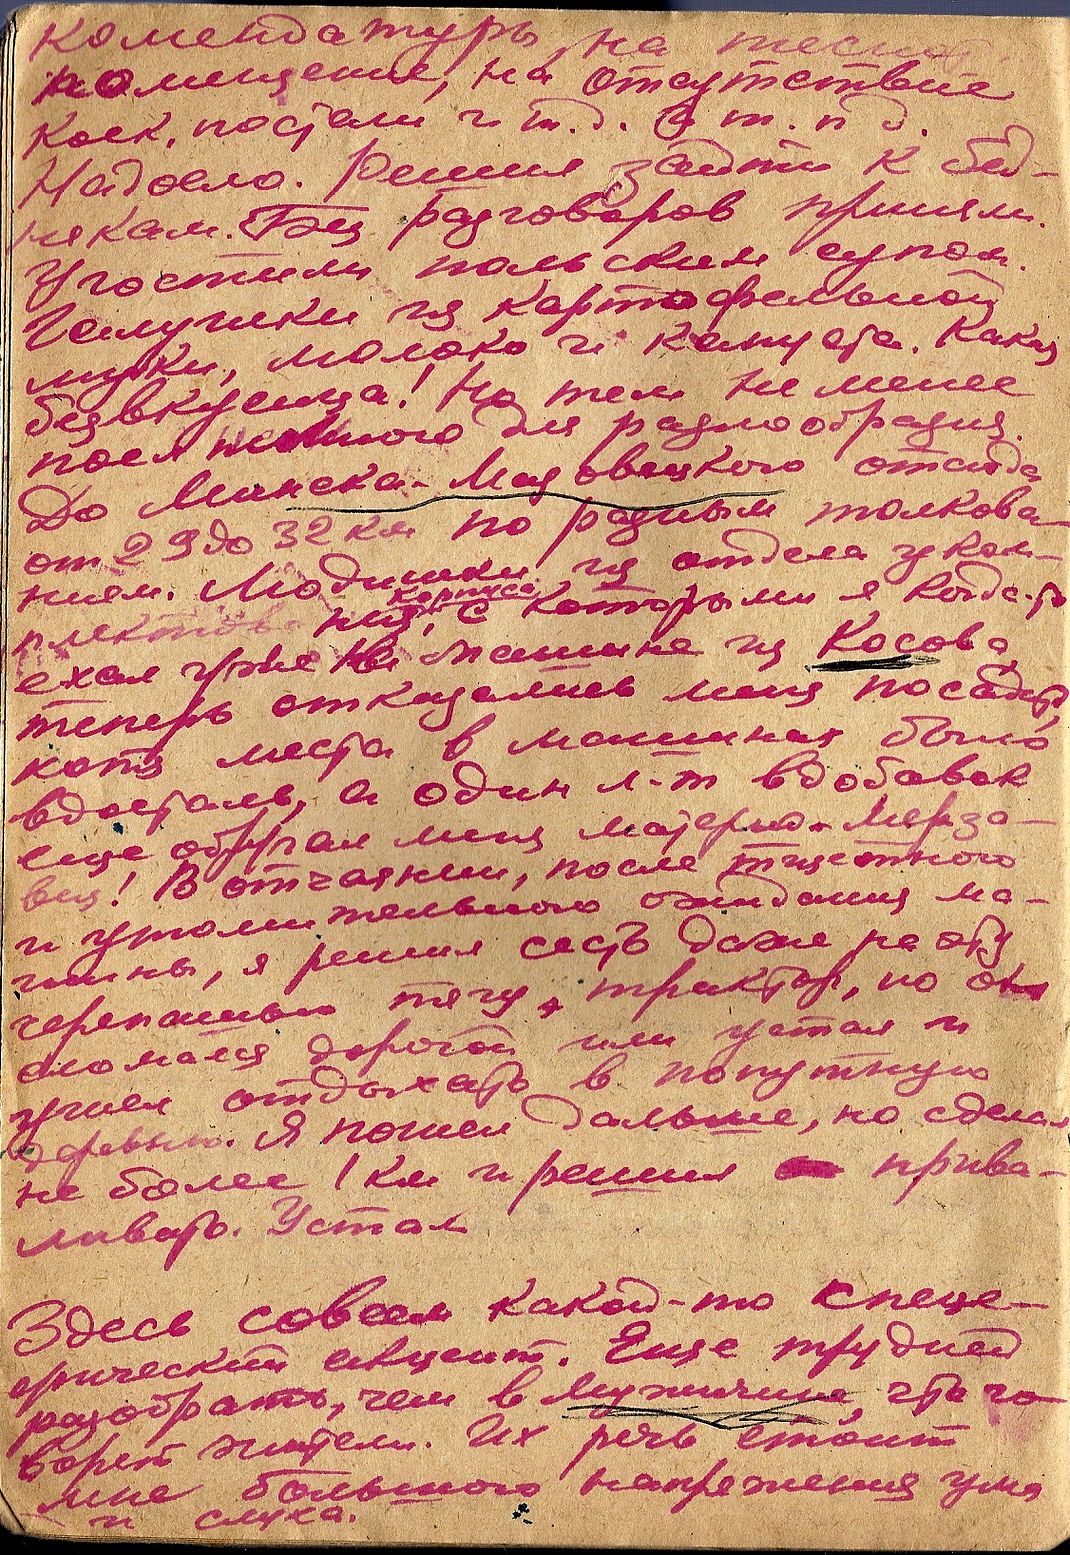 комендатуры, на тесноту
помещение, на отсутствие
коек, постели и т.д. и т.п д.
Надоело. Решил зайти к бед-
някам. Без разговоров приняли.
Угостили польским супом.
Галушки из картофельной
муки, молоко и капуста. Какая
безвкусица! Но тем не менее
поел немного для разнообразия.
До Минска-Мазовецкого отсюда
от 29 до 32 км по разным толкова-
ниям. Людишки из отдела уком-
плектования корпуса, с которыми я когда-то
ехал уже на машине из Косова
теперь отказались меня посадить,
хотя места в машинах было
вдосталь, а один л-т вдобавок
еще обругал меня матерно. Мерза-
вец! В отчаянии, после тщетного
и утомительного ожидания ма-
шины, я решил сесть даже на эту
черепашью тягу, трактор, но он
сломался дорогой или устал и
ушел отдыхать в попутную
деревню. Я пошел дальше, но сделал
не более 1 км и решил прива-
ливать. Устал

Здесь совсем какой-то специ-
фический акцент. Еще трудней
разобрать, чем в Мужичине, что го-
ворят жители. Их речь стоит
мне большого напряжения ума
и слуха.